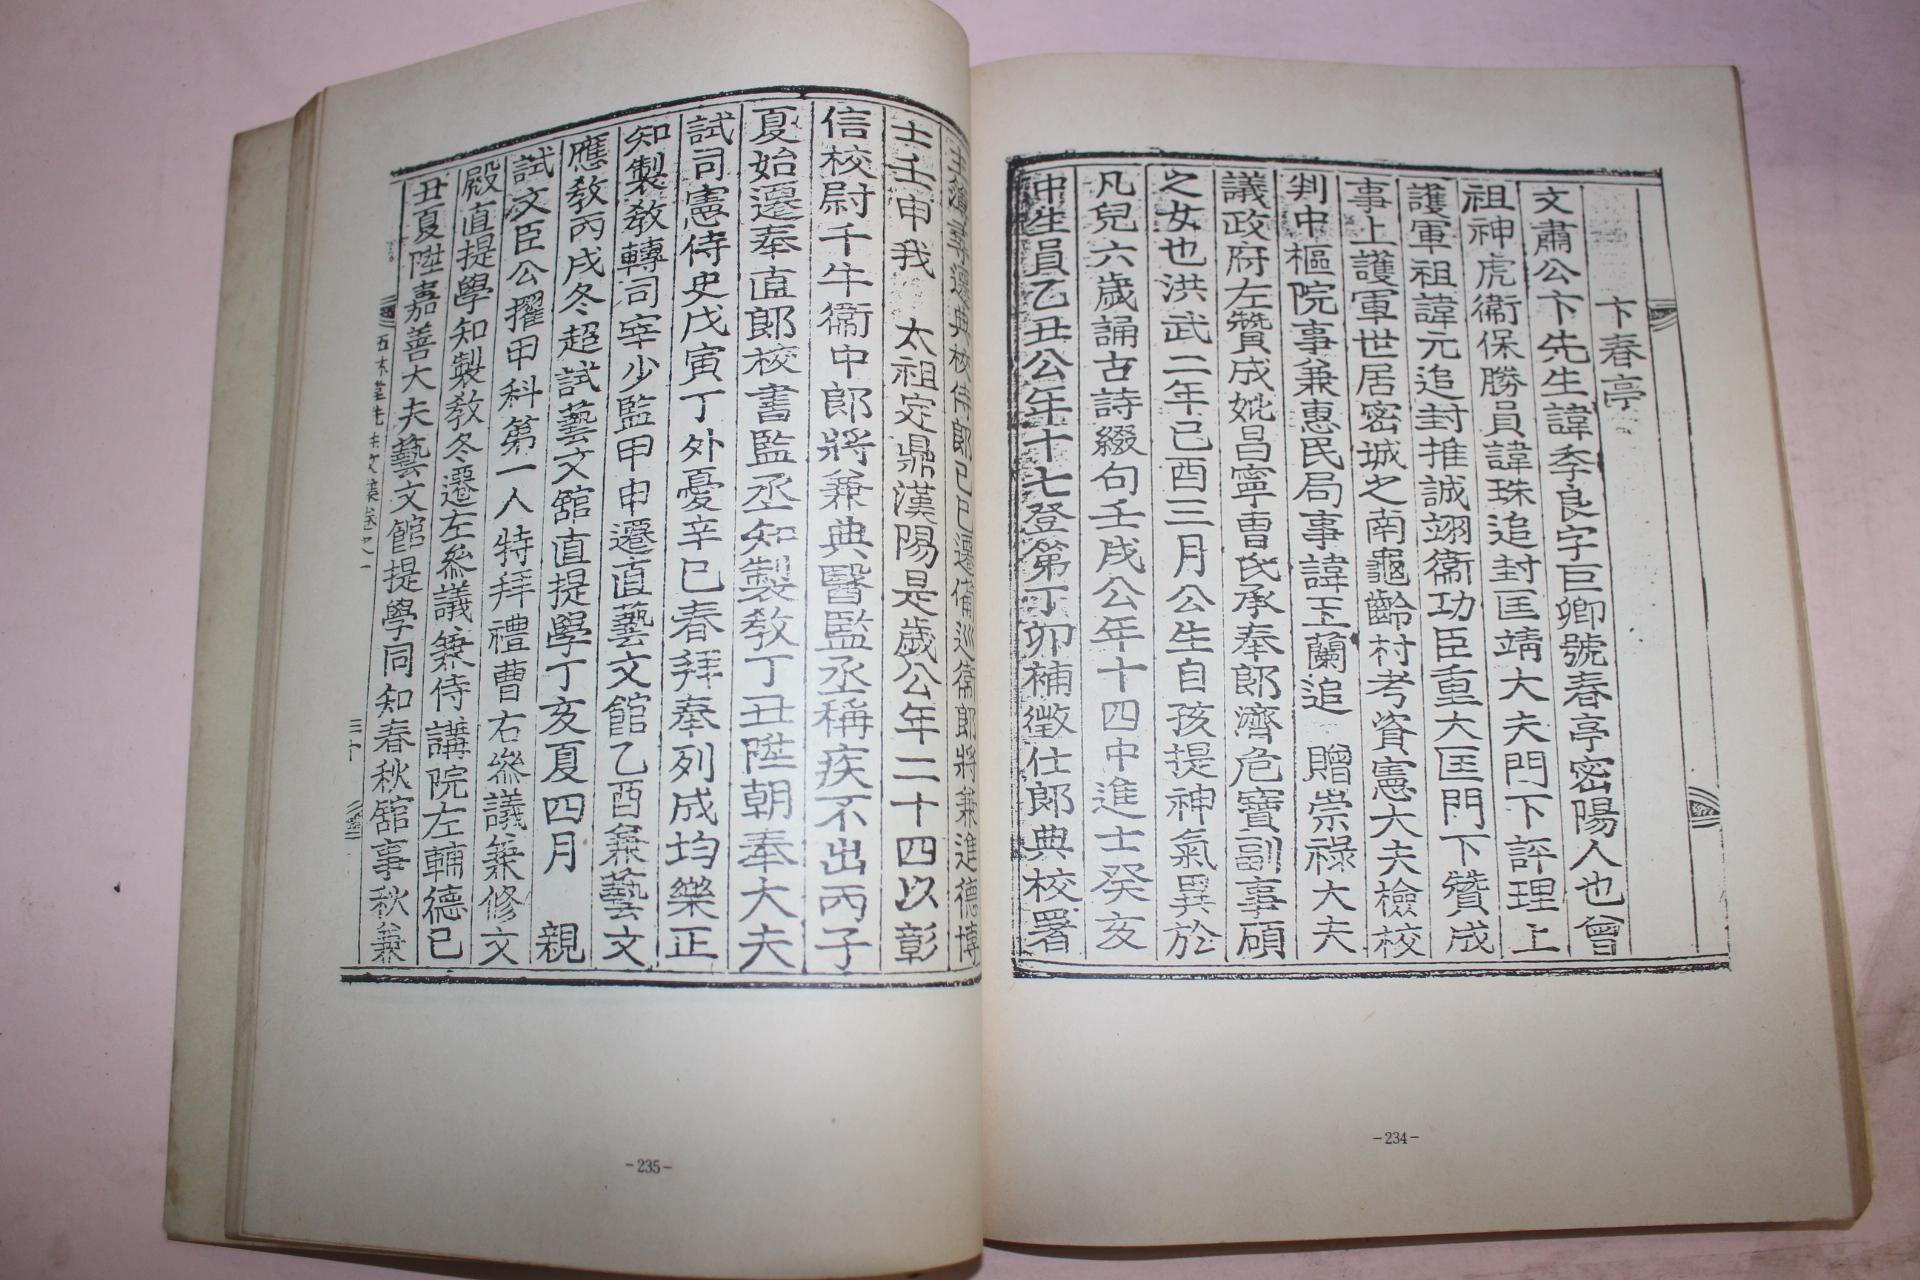 卞春亭
文肅公卞先生諱季良字巨卿號春亭密陽人也曾
祖神虎衞保勝員諱珠追封匡靖大夫門下評理上
護軍祖諱元追封推誠翊衞功臣重大匡門下贊成
事上護軍世居密城之南龜齡村考資憲大夫檢校
判中樞院事兼惠民局事諱玉蘭追 贈崇祿大夫
議政府左贊成妣昌寧曺氏承奉郎濟危寶副事碩
之女也洪武二年己酉三月公生自孩提神氣異於
凡兒六歲誦古詩綴句壬戌公年十四中進士癸亥
中生員乙丑公年十七登第丁卯補徵仕郎典校署
遷典校侍郎己巳遷備巡衞郎將兼進德博
士壬申我 太祖定鼎漢陽是歲公年二十四以彰
信校尉千牛衞中郎將兼典醫監丞稱疾不出丙子
夏始遷奉直郎校書監丞知製敎丁丑陞朝奉大夫
試司憲侍史戊寅丁外憂辛巳春拜奉列成均樂正
知製敎轉司宰少監甲申遷直藝文館乙酉兼藝文
應敎丙戌冬超試藝文館直提學丁亥夏四月 親
試文臣公擢甲科第一人特拜禮曹右參議兼修文
殿直提學知製敎冬遷左參議兼侍講院左輔德己
丑夏陞嘉善大夫藝文館提學同知春秋館事秋兼
三十
-234-
-235-